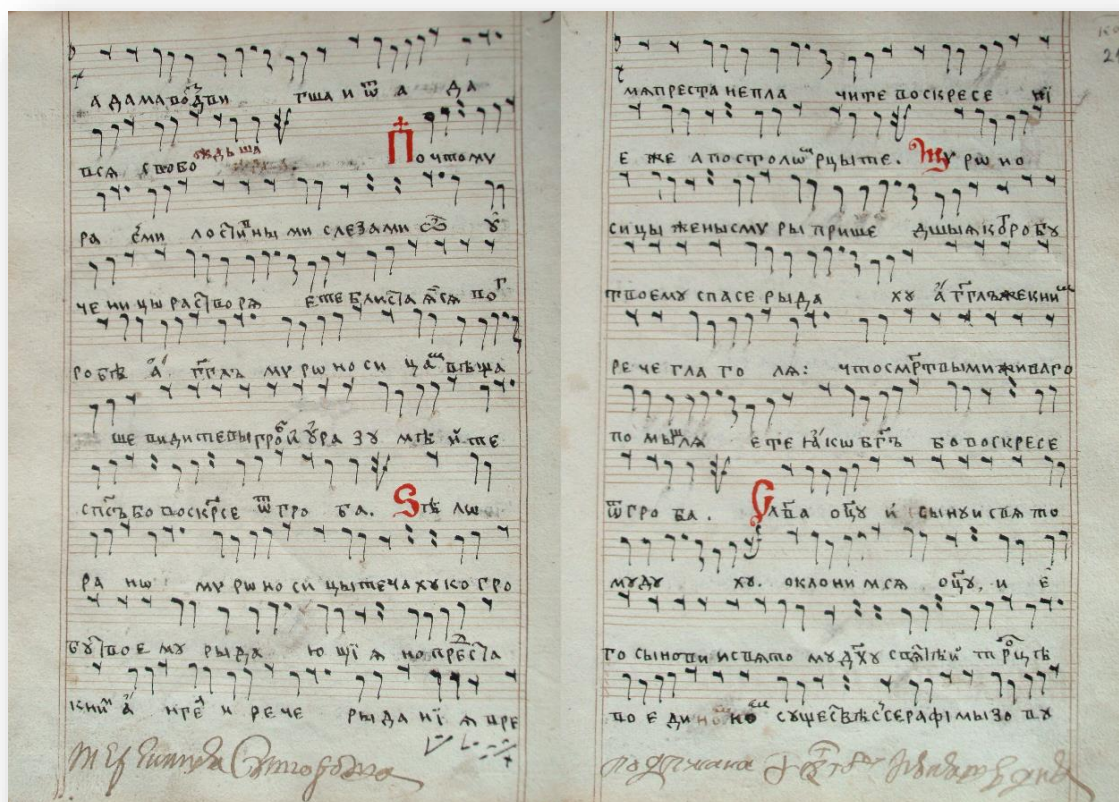 а дама воздви гша и ѿ а да
вся свобождьша Почтому
ра сми лостивны ми слезами ѡ у
че ницы растворя ете блиста яйся во г
робѣ а гглъ мурѡноси цам вѣща
ше видитевыгроб и ура зу мѣ йте
спсъ бо воскрсе ѿ гро ба. Ѕѣ лѡ
ра нѡ мурѡноси цытечахукогро
бутвое му рыда ю щї я нопреста
кним а нгел и рече рыданї я вре
мяпрестанепла чите воскресе нї
е же апостолѡм рцыте. Мурѡно
сицы женысму ры прише дшыякогробу
твоему спасе рыда ху агглъжекним
рече гла го ля: чтосмртвыми живаго
помышля ете якѡ бгъ бовоскресе
ѿгро ба. Слава оцу и сынуисвято
муду ху. оклонимся оцу, и е
го сынови исвято му дху святѣй трцѣ
во е ди но сущесвѣ ссерафімызо ву